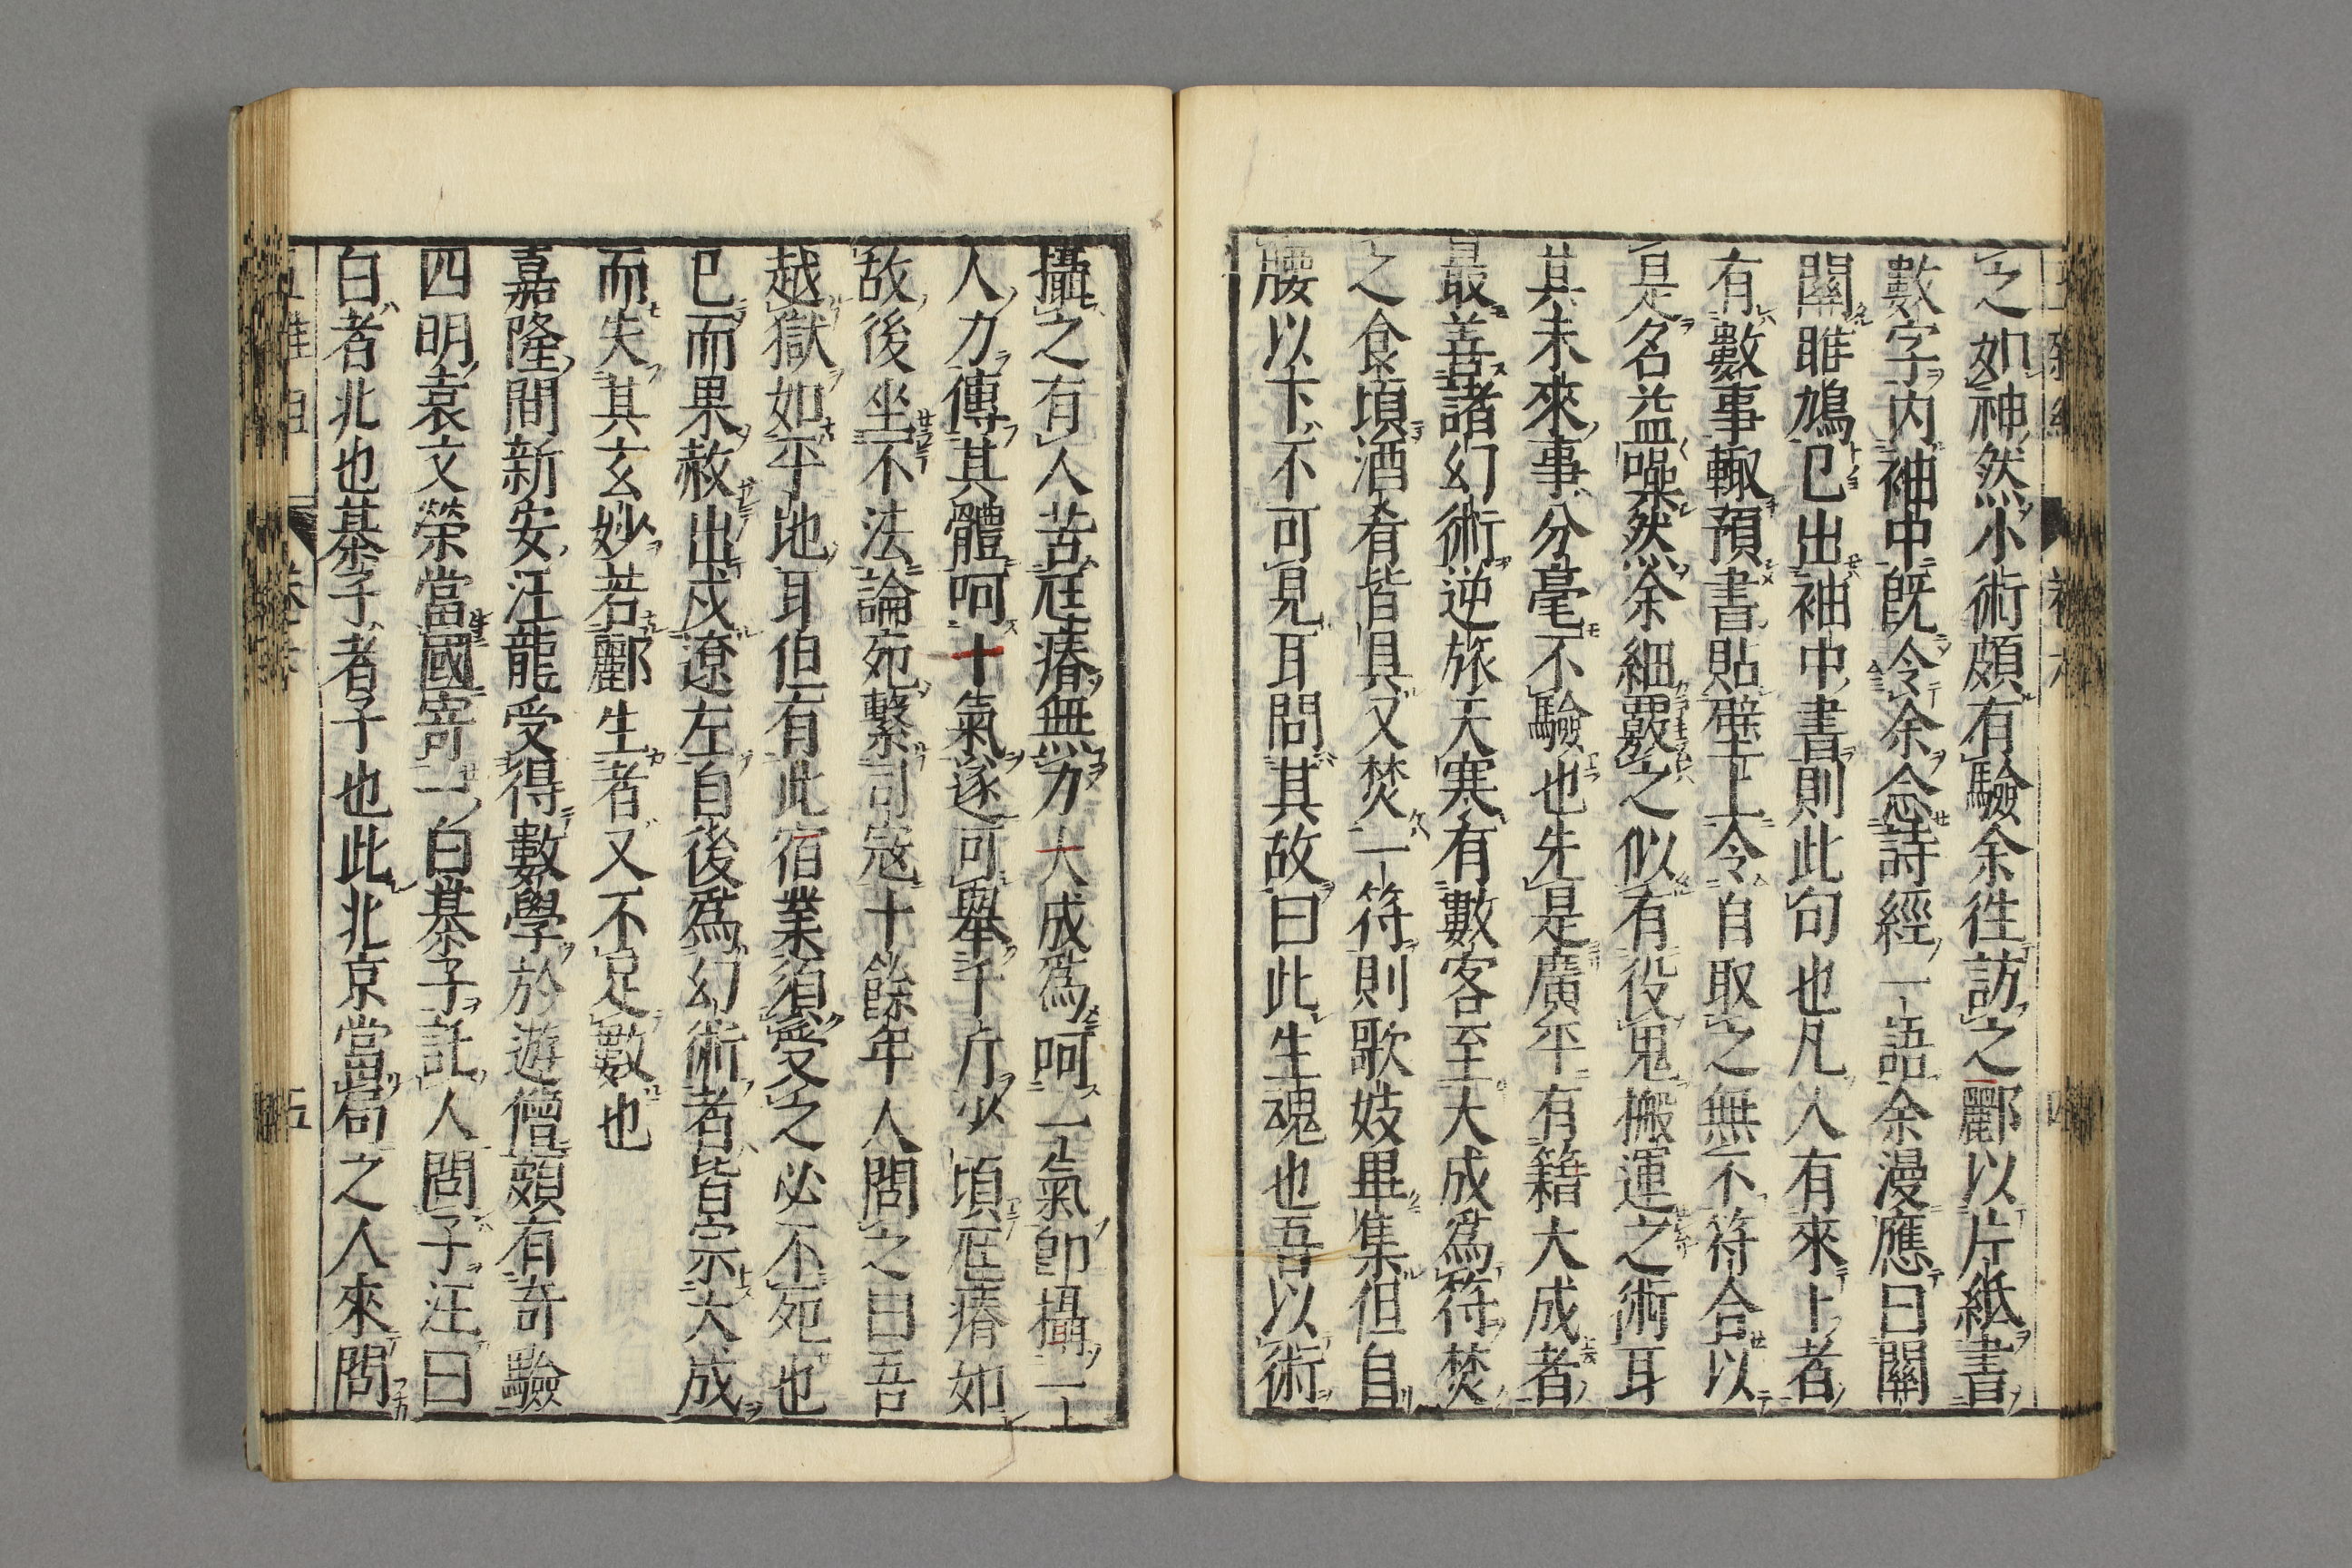 之如神然小術頗有驗余徃訪之酈以片紙書
數字内袖中旣令余念詩經一語余漫應曰關
關雎鳩已出袖中書則此句也凡人有來卜者
有數事輙預書貼壁上令自取之無不符合以
是名益噪然余細覈之似有役鬼搬運之術耳
其未來事分毫不驗也先是廣平有籍大成者
最善諸幻術逆旅天寒有數客至大成爲符焚
之食頃酒肴皆具又焚一符則歌妓畢集但自
腰以下不可見耳問其故曰此生魂也吾以術
攝之有人苦尪瘠無力大成爲呵一氣卽攝一
人力傳其體呵十氣遂可舉千斤少頃尪瘠如
故後坐不法論死繫司寇十餘年人問之曰吾
越獄如平地耳但有此宿業須受之必不死也
已而果赦出戍遼左自後爲幻術者皆宗大成
而失其玄妙若酈生者又不足數也
嘉隆間新安汪龍受得數學於遊僧頗有奇驗
四明袁文榮當國寄一白棊子託人問子汪曰
白者北也棊子者子也此北京當局之人來問
五